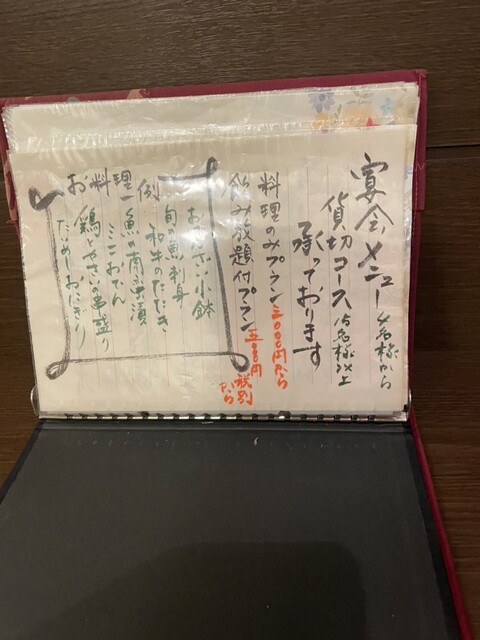 宴会メニュー 4名様から
貸切コース 15名様以上
承っております
料理のみプラン 三〇〇〇円から
飲み放題付プラン 五〇〇〇円
税別
から
お料理例
小鉢
旬の魚刺身
和牛のたたき
魚の南蛮漬
ここおでん
鶏とやさい串盛り
おにぎり